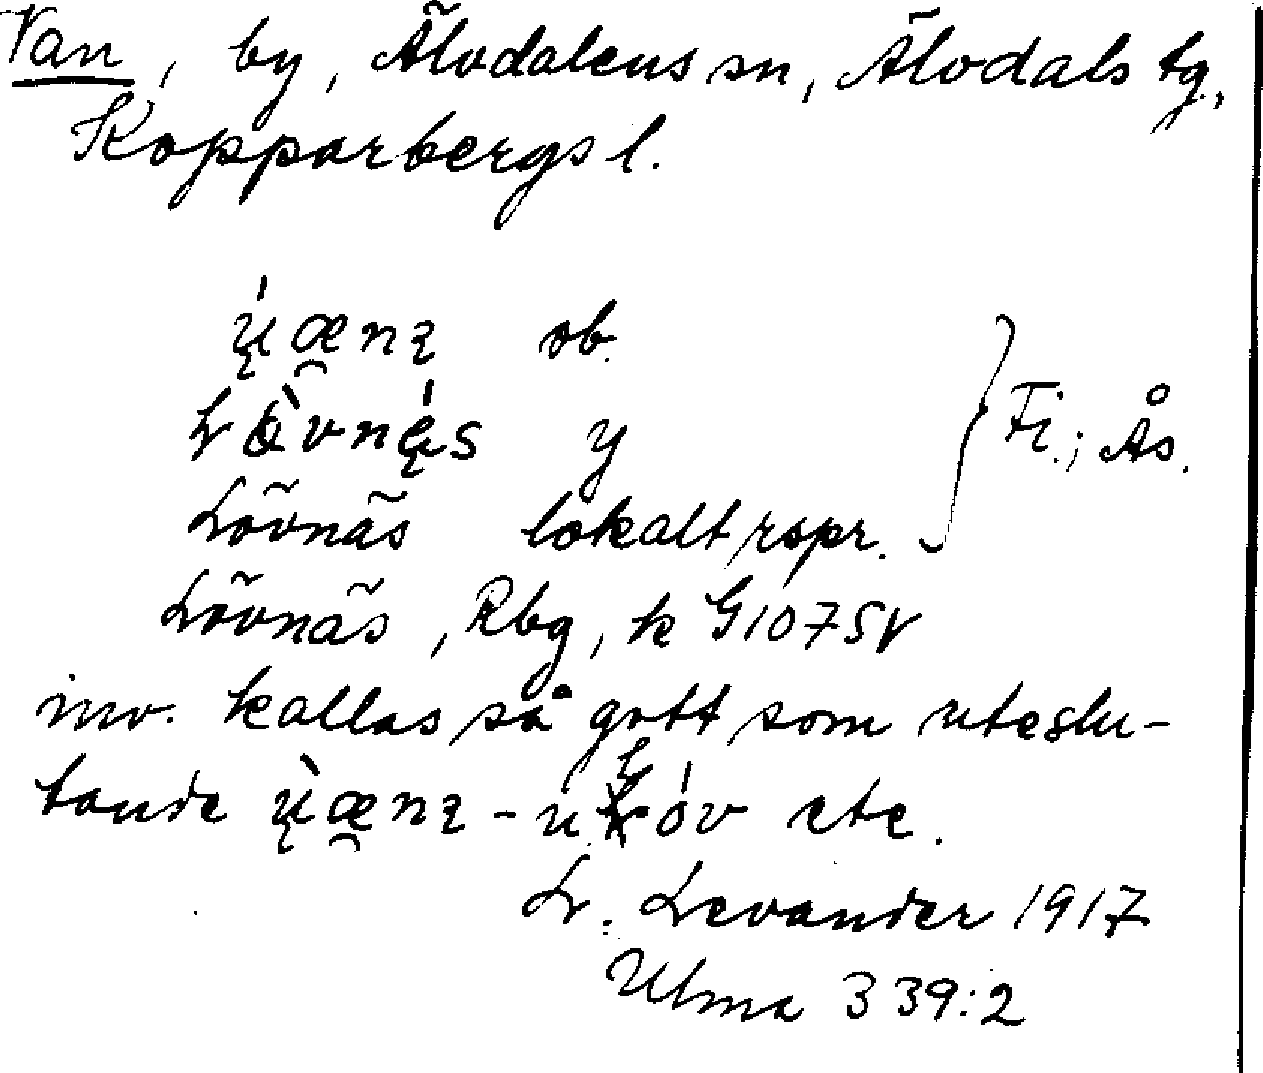 Van, by, Älvdalens sn, Älvdals tg,
Kopparbergs l.
sb.
y
Fi.; Ås.
Lövnäs lokalt rspr.
Lövnäs, Rbg, k G1075V
inv. kallas så gott som uteslu-
tande etc.
L. Levander 1917
Ulma 339:2